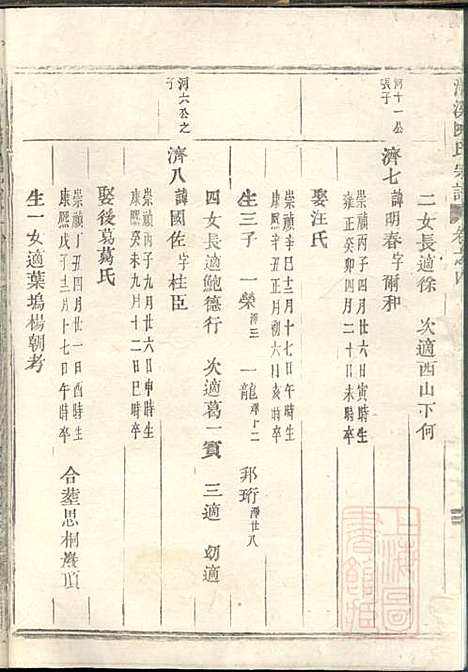 二女長適徐 次適西山下何
河十一公
長子
濟七 諱明春字爾和
崇禎丙子四月廿六日寅時生
雍正癸卯四月二十日未時卒
娶汪氏
崇禎辛巳十二月十七日午時生
康熙辛丑正月初六日亥時卒
生三子 一榮澤三 一龍澤十二 邦珩澤廿八
四女長適鮑德行 次適葛一賓 三適 幼適
河六公之
子
濟八 諱國佐字柱臣
崇禎丙子九月廿六日申時生
康熙癸未九月十二日巳時卒
娶後葛葛氏
崇禎丁丑四月廿一日酉時生
康熙戊子十二月十七日午時卒
合塟思桐巖頂
生一女適葉塢楊朝考